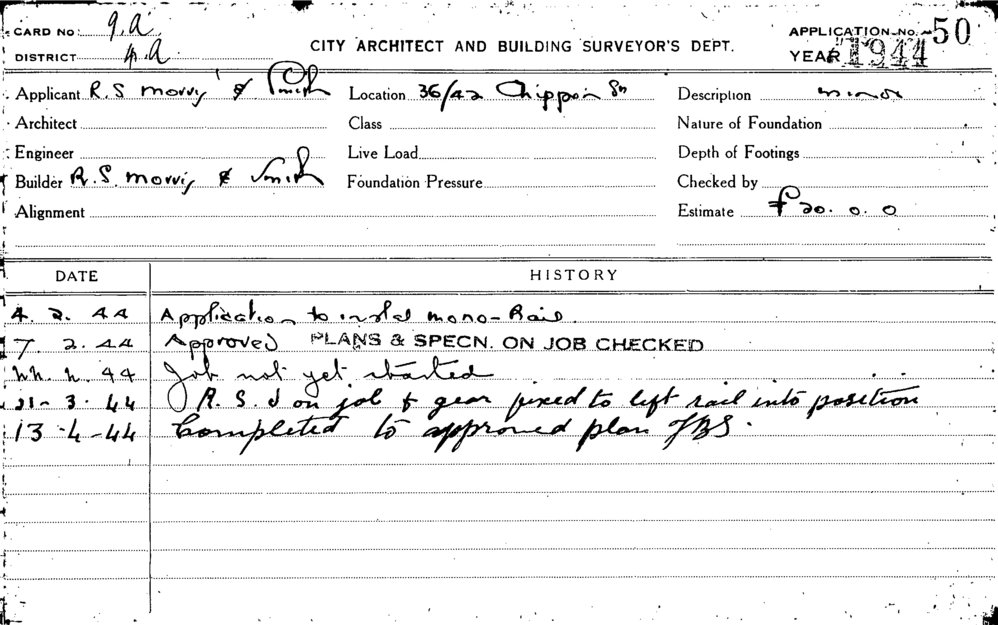 CARD No: 9.a APPLICATION No. 50
DISTRICT CITY ARCHITECT AND BUILDING SURVEYOR'S DEPT. YEAR 1944
Applicant R.S Morris & Smith Location 36/42 Chippen St Description minor
Architect Class Nature of Foundation
Engineer Live Load Depth of Footings
Builder R.S. Morris & Smith Foundation Pressure Checked by
Alignment Estimate £20.0.0
DATE HISTORY
4. 2. 44 Application to instal mono-Rail.
7. 2. 44 Approved PLANS & SPECN. ON JOB CHECKED
44 Job not yet started
21-3-44 R.S.J on job & gear fixed to lift rail into position
13-4-44 Completed to approved plan